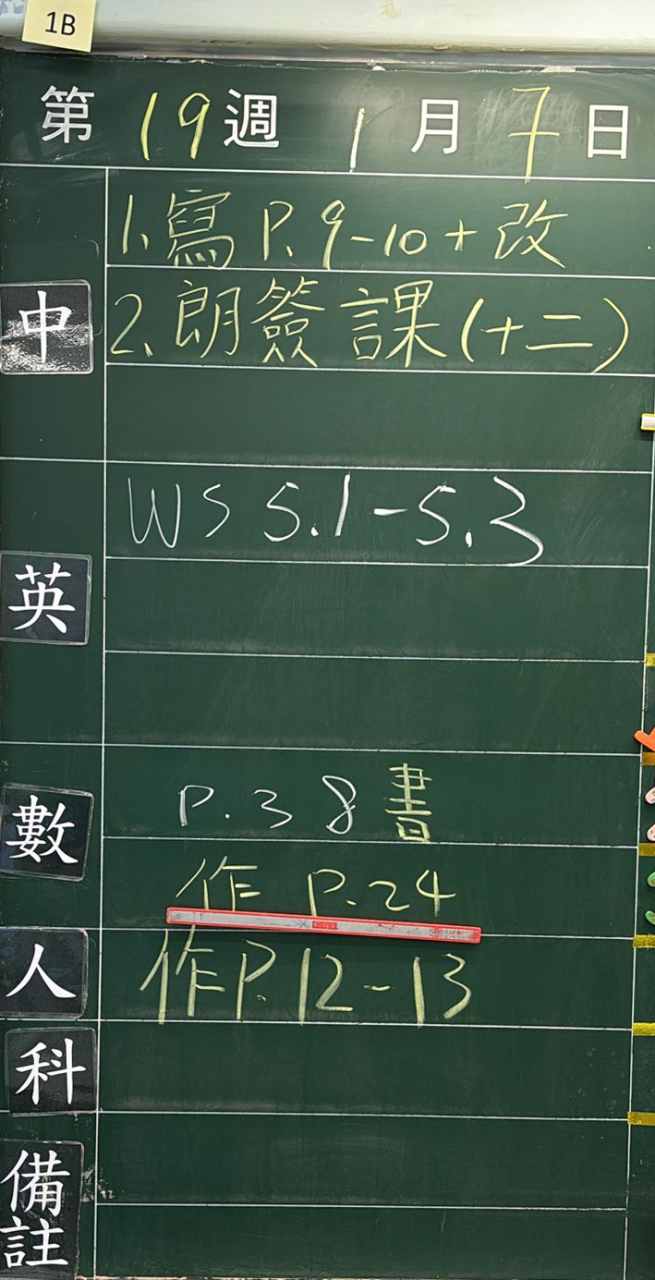 1B
第19週 1月7日
中
1. 寫 P. 9-10 + 改
2. 朗簽課(十二)
英
WS 5.1-5.3
數
P.38書
作 P.24
人
作P.12-13
科
備註